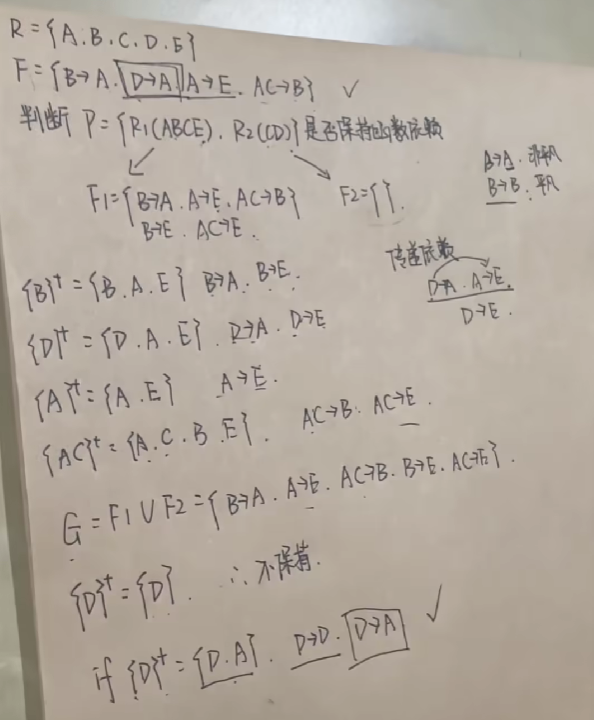 R={A.B.C.D.E}
F={B→A.D→A.A→E.AC→B} ✓
判断 P={R1(ABCE).R2(CD)}是否保持函数依赖
F1={B→A.A→E.AC→B}
B→E.AC→E.
F2={}.
A→A.非平凡
B→B.平凡
{B}⁺={B.A.E} B→A.B→E.
传递依赖
D→A.A→E.
D→E.
{D}⁺={D.A.E}.D→A.D→E
{A}⁺={A.E} A→E.
{AC}⁺={A.C.B.E}. AC→B.AC→E.
G=F1∪F2={B→A.A→E.AC→B.B→E.AC→E}.
{D}⁺={D}. ∴不保持.
if {D}⁺={D.A}. D→D.D→A ✓